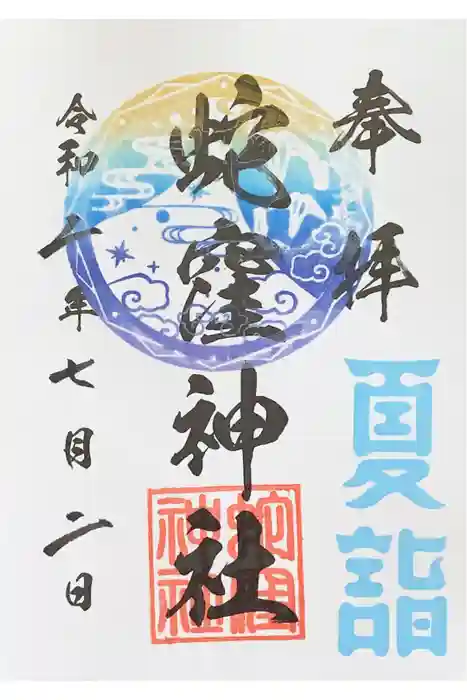 奉拝
夏詣
蛇窪神社
蛇窪神社
令和 年七月二日